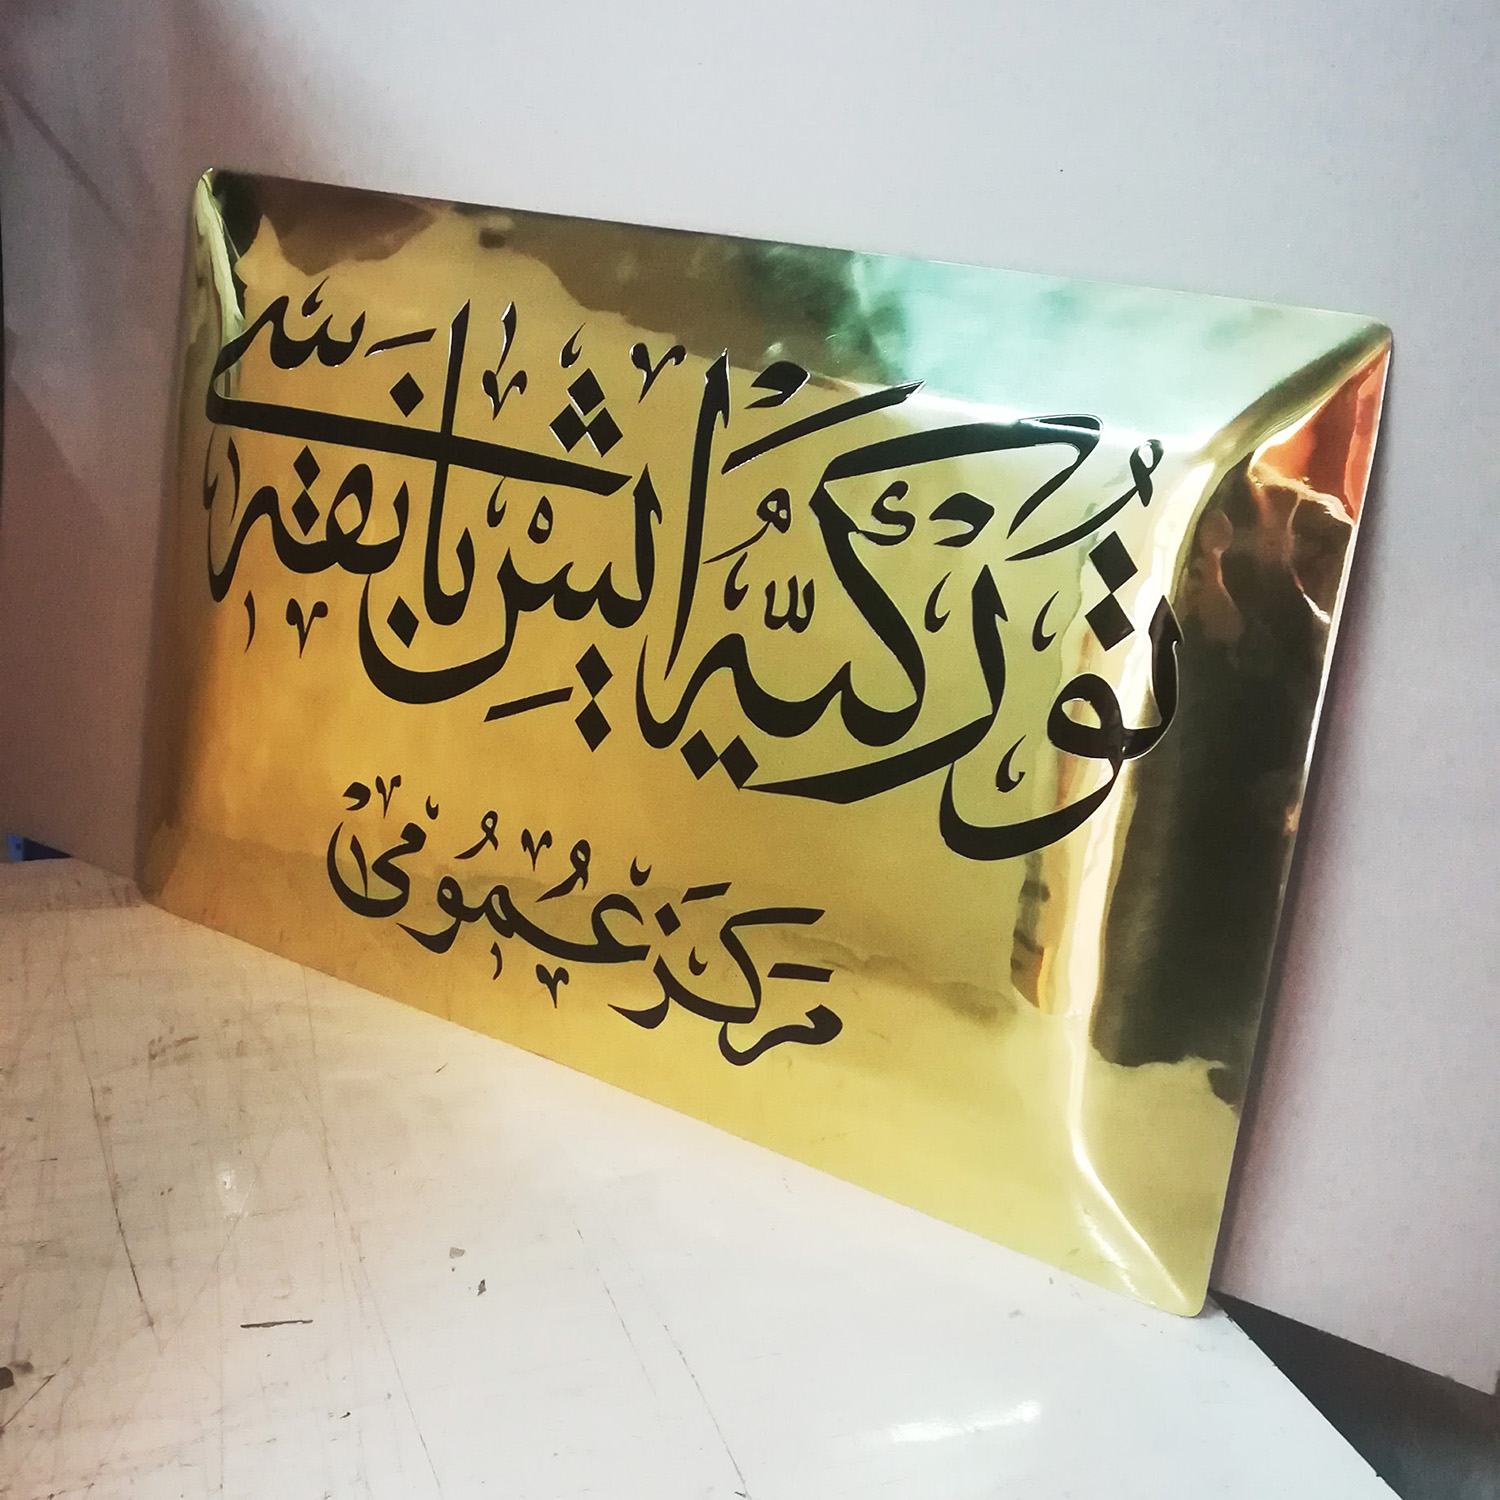 تُورْكيَّه ايش بانقه سى
مركز عُمُومى